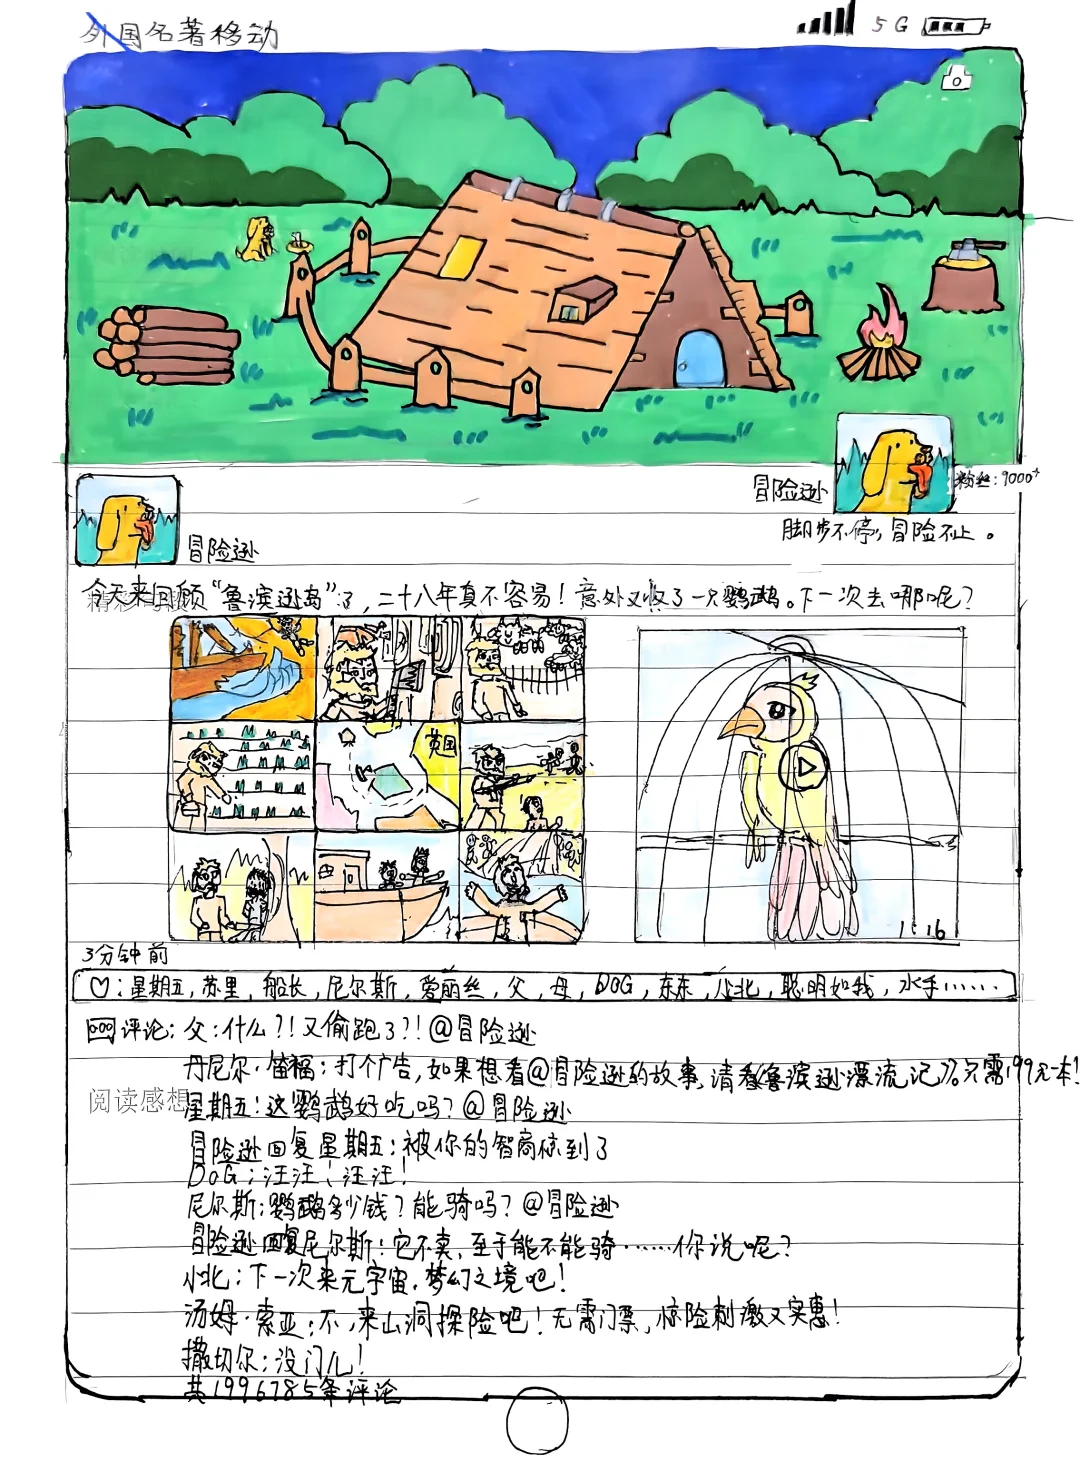 外国名著移动 5G
冒险逊 粉丝:9000+
脚步不停,冒险不止。
冒险逊
今天来回顾“鲁滨逊岛”了,二十八年真不容易!意外又收了一只鹦鹉。下一次去哪呢?
英国
1:16
3分钟前
♡:星期五,苏里,船长,尼尔斯,爱丽丝,父,母,DOG,东东,小北,聪明如我,水手……
评论:父:什么?!又偷跑了?!@冒险逊
丹尼尔·笛福:打个广告,如果想看@冒险逊的故事,请看《鲁滨逊漂流记》。只需199元一本!
阅读感想
星期五:这鹦鹉好吃吗?@冒险逊
冒险逊回复星期五:被你的智商惊到了
DOG:汪汪!汪汪!
尼尔斯:鹦鹉多少钱?能骑吗?@冒险逊
冒险逊回复尼尔斯:它不卖,至于能不能骑……你说呢?
小北:下一次来元宇宙,梦幻之境吧!
汤姆·索亚:不,来山洞探险吧!无需门票,惊险刺激又实惠!
撒切尔:没门儿!
共1996785条评论